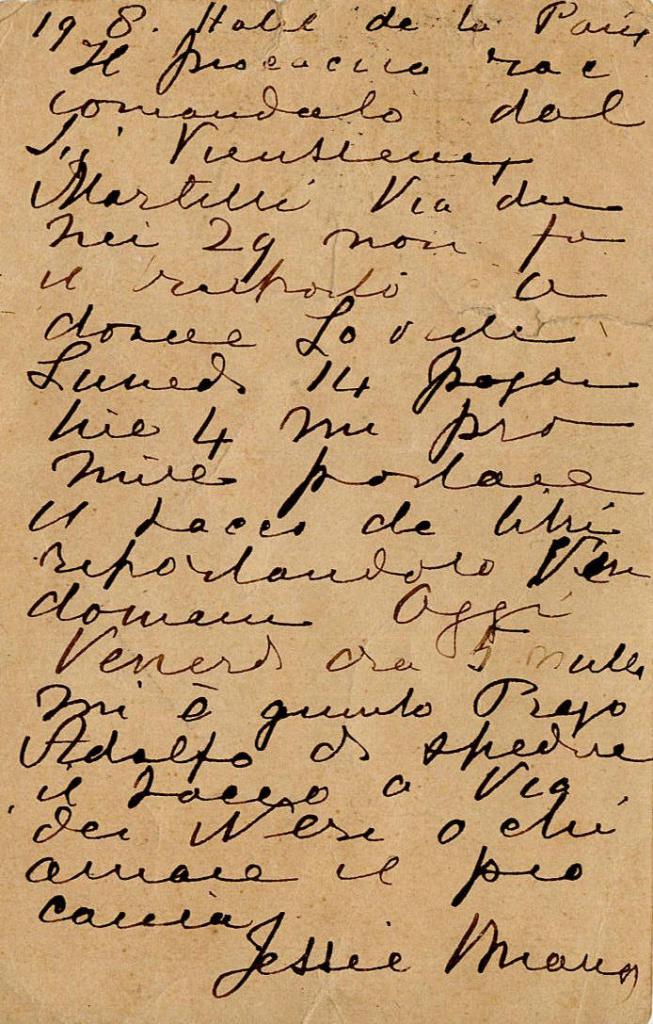 19 8. Hotel de la Paix
Il procaccia rac
comandato dal
Sig Vieusseux
Martelli Via dei
Neri 29 non fa
il
dovere Lo vide
Lunedi 14 pagan
4 mi pro
mise portare
il sacco de libri
riportandolo Ven
domani Oggi
Venerdi ora 5 nulla
mi è giunto Prego
Adolfo di spedire
il sacco a Via
dei Neri o chi
amare il pro
caccia
Jessie Mario